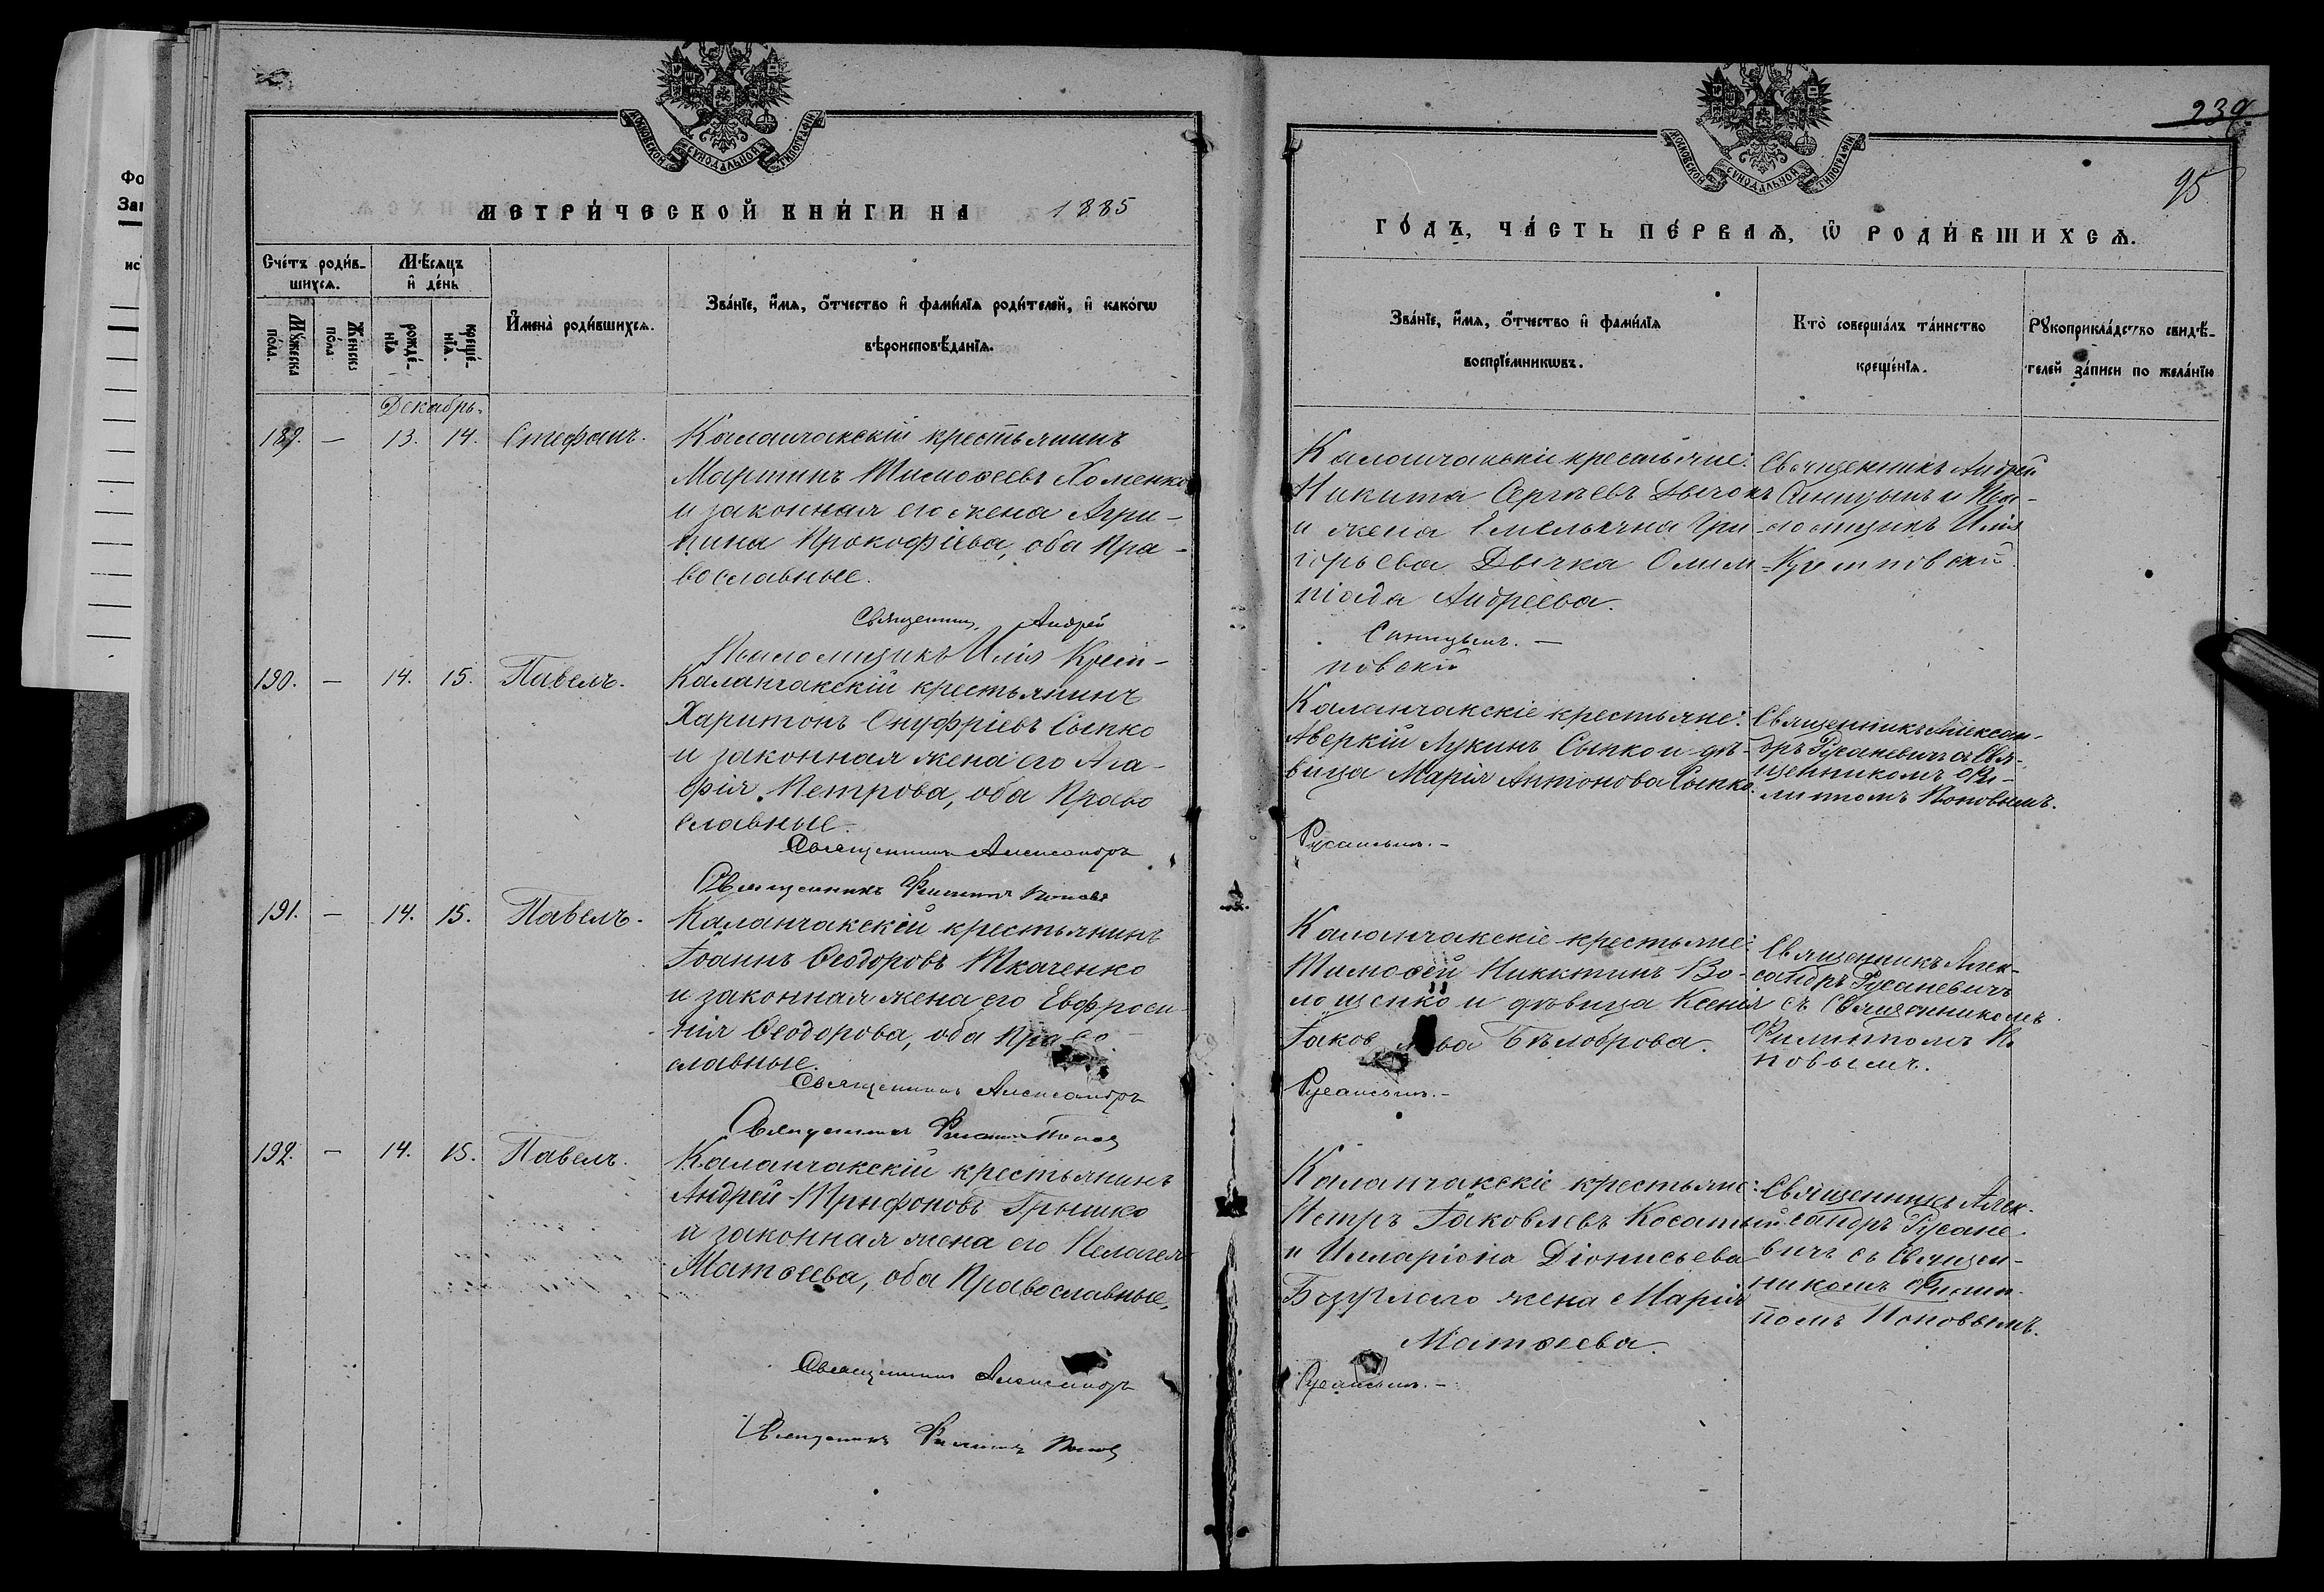 МОСКОВСКОЙ СѴНОДАЛЬНОЙ ТИПОГРАФІИ
МЕТРИ́ЧЕСКОЙ КНИ́ГИ НА 1885
Сче́тъ роди́в-
шихсѧ.
Мꙋ́жеска
по́ла.
Же́нска
по́ла
Мѣ́сѧцъ
и҆ де́нь
рожде́-
нїѧ
креще́-
нїѧ.
И҆мена̀ роди́вшихсѧ.
Зва́нїе, и҆́мѧ, ѻ҆́тчество и҆ фами́лїѧ роди́телей, и҆ како́гѡ
вѣроисповѣ́данїѧ.
Декабрь.
189. — 13. 14. Стефанъ.
Каланчакскій крестьянинъ
Мартинъ Тимоѳеевъ Хоменко
и законная его жена Агри-
пина Прокофіева, оба Пра-
вославные.
Священникъ Андрей
Псаломщикъ Илія Креп-
190. — 14. 15. Павелъ.
Каланчакскій крестьянинъ
Харитонъ Онуфріевъ Сыпко
и законная жена его Ага-
фія Петрова, оба Право
славные.
Священникъ Александръ
Священникъ Филиппъ Поповъ
191. — 14. 15. Павелъ.
Каланчакскій крестьянинъ
Іоаннъ Ѳеодоровъ Ткаченко
и законная жена его Евфроси-
нія Ѳеодорова, оба Право-
славные.
Священникъ Александръ
Священникъ Филиппъ Поповъ
192. — 14. 15. Павелъ.
Каланчакскій крестьянинъ
Андрей Трифоновъ Грышко
и законная жена его Пелагея
Матѳеева, оба Православные.
Священникъ Александръ
Священникъ Филиппъ Поповъ
МОСКОВСКОЙ СѴНОДАЛЬНОЙ ТИПОГРАФІИ
239.
95
ГО́ДЪ, ЧА́СТЬ ПЕ́РВАѦ, Ѡ҆ РОДИ́ВШИХСѦ.
Зва́нїе, и҆́мѧ, ѻ҆́тчество и҆ фами́лїѧ
воспрїе́мникѡвъ.
Кто̀ соверша́лъ та́инство
креще́нїѧ.
Рꙋкоприкла́дство свидѣ́-
телей за́писи по жела́нїю
Каланчакскіе крестьяне:
Никита Сергѣевъ Дычокъ
и жена Емельяна Гри-
горьева Дычка Олим-
піада Андреева.
Синицынъ. —
повскій
Священникъ Андрей
Синицынъ и Пса-
ломщикъ Илія
Крепповскій
Каланчакскіе крестьяне:
Аверкій Лукинъ Сыпко и дѣ-
вица Марія Антонова Сыпко.
Русаневичъ. —
Священникъ Алексан-
дръ Русаневичъ съ Свя-
щенникомъ Фи-
липпомъ Поповымъ.
Каланчакскіе крестьяне:
Тимоѳей Никитинъ Во-
лощенко и дѣвица Ксенія
Іаковлева Бѣлоброва.
Русаневичъ. —
Священникъ Алек-
сандръ Русаневичъ
съ Священникомъ
Филиппомъ По
повымъ.
Каланчакскіе крестьяне:
Петръ Іаковлевъ Косатый
и Илларіона Діонисьева
жена Марія
Матѳеева.
Русаневичъ. —
Священникъ Алек-
сандръ Русане-
вичъ съ Священ-
никомъ Филип-
помъ Поповымъ.